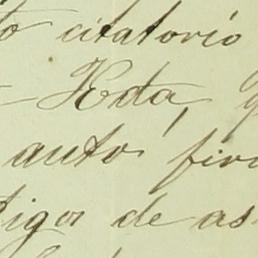 citatorio
Hda,
auto fir
tigos de as